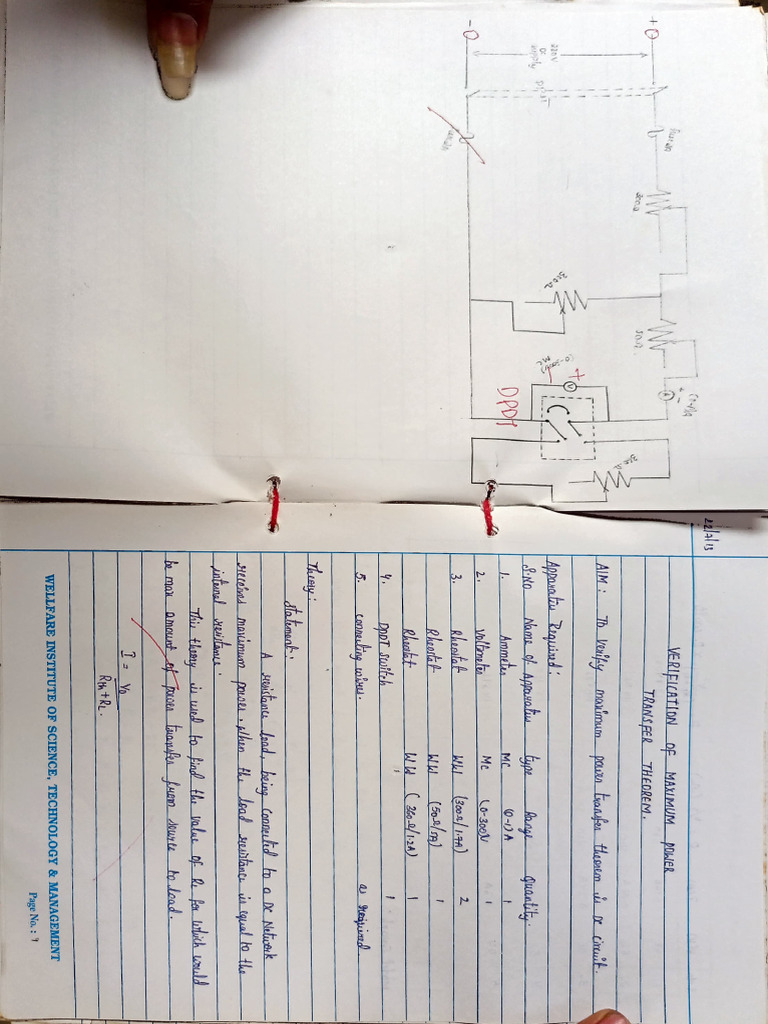 +
220V
DC
supply
-
300Ω
350Ω
50Ω
+
-
V
+
MC
DPDT
350Ω
22/7/13
VERIFICATION OF MAXIMUM POWER
TRANSFER THEOREM.
AIM : To verify maximum power transfer theorem is DC circuit.
Apparatus Required :
S.No Name of Apparatus type Range Quantity.
1. Ammeter MC (0-1)A 1
2. Voltmeter MC (0-300)V 1
3. Rheostat WW (300Ω/1.7A) 2
Rheostat WW (50Ω/5A) 1
Rheostat WW (350Ω/1.2A) 1
4. DPDT switch 1
5. connecting wires. as required
Theory :
Statement :
A resistance load, being connected to a DC Network
receives maximum power, when the load resistance is equal to the
internal resistance.
This theory is used to find the value of RL for which would
be max amount of power transfer from source to load.
I = V0
RTh + RL.
WELLFARE INSTITUTE OF SCIENCE, TECHNOLOGY & MANAGEMENT
Page No. : 9